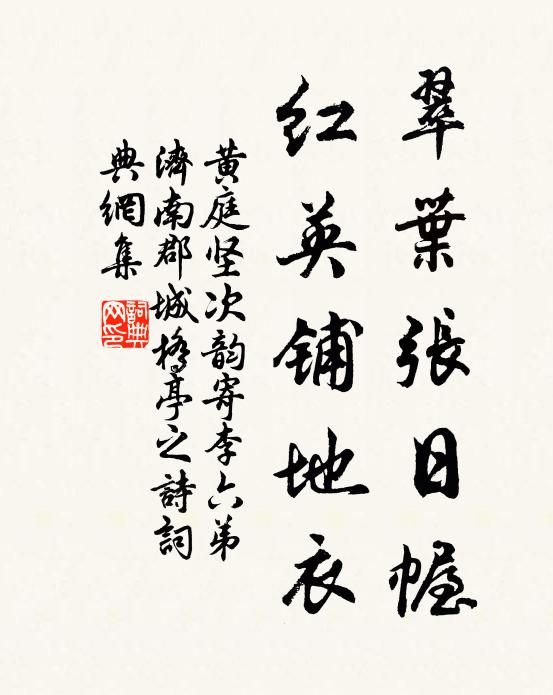 翠葉張日幄
紅英鋪地衣
黄庭坚次韵寄李六弟
濟南郡城橋亭之詩詞
典網集
詞典网印